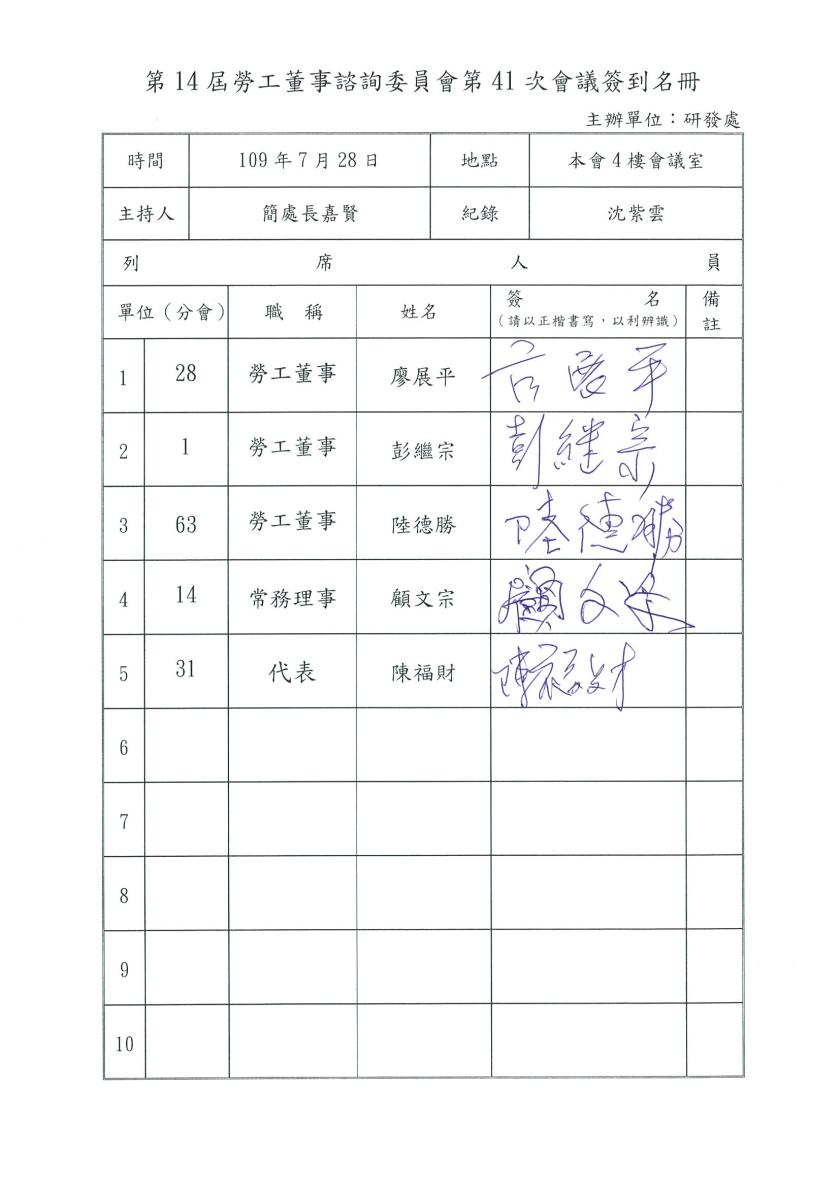 第 14 屆勞工董事諮詢委員會第 41 次會議簽到名冊
主辦單位：研發處
時間 109 年 7 月 28 日 地點 本會 4 樓會議室
主持人 簡處長嘉賢 紀錄 沈紫雲
列 席 人 員
單位（分會） 職 稱 姓名 簽 名 備註
（請以正楷書寫，以利辨識）
1 28 勞工董事 廖展平 展平
2 1 勞工董事 彭繼宗 彭繼宗
3 63 勞工董事 陸德勝 陸德勝
4 14 常務理事 顧文宗 顧文宗
5 31 代表 陳福財 陳福財
6
7
8
9
10